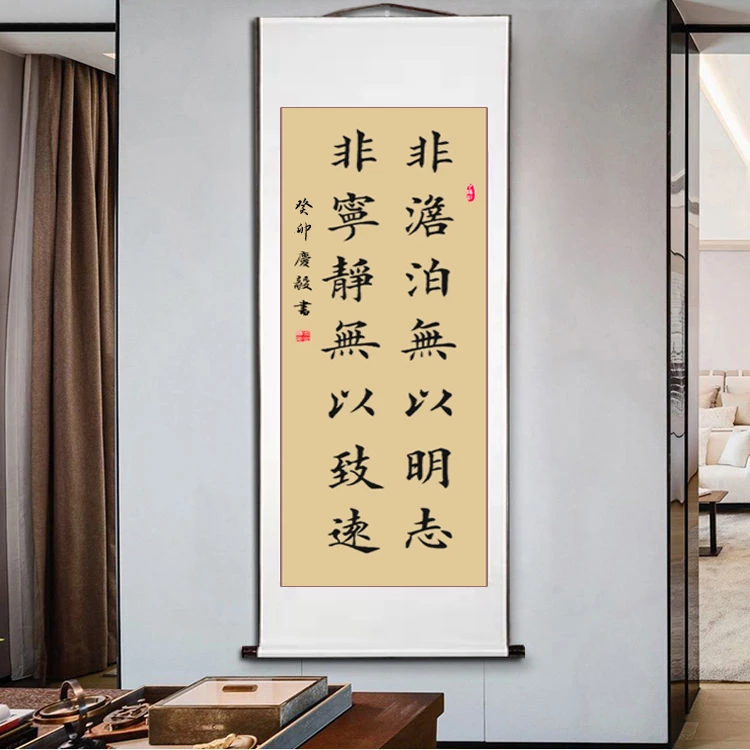 非澹泊無以明志
非寧靜無以致遠
癸卯慶毅書